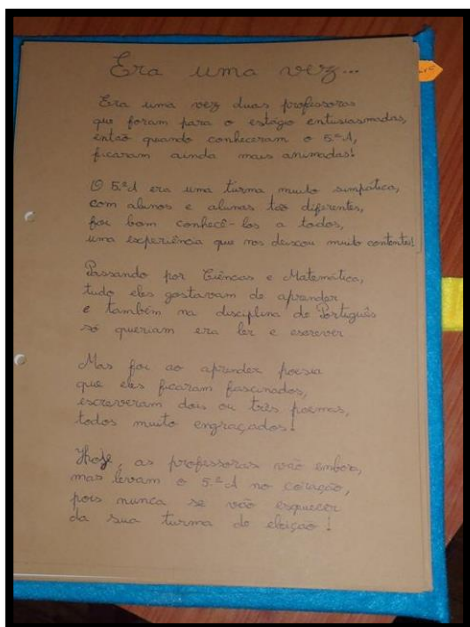 Era uma vez...
Era uma vez duas professoras
que foram para o estágio entusiasmadas,
então quando conheceram o 5.ºA,
ficaram ainda mais animadas!
O 5.ºA era uma turma muito simpática,
com alunos e alunas tão diferentes,
foi bom conhecê-los a todos,
uma experiência que nos deixou muito contentes!
Passando por Ciências e Matemática,
tudo eles gostavam de aprender
e também na disciplina de Português
só queriam era ler e escrever
Mas foi ao aprender poesia
que eles ficaram fascinados,
escreveram dois ou três poemas,
todos muito engraçados!
Hoje, as professoras vão embora,
mas levam o 5.ºA no coração,
pois nunca se vão esquecer
da sua turma de eleição!